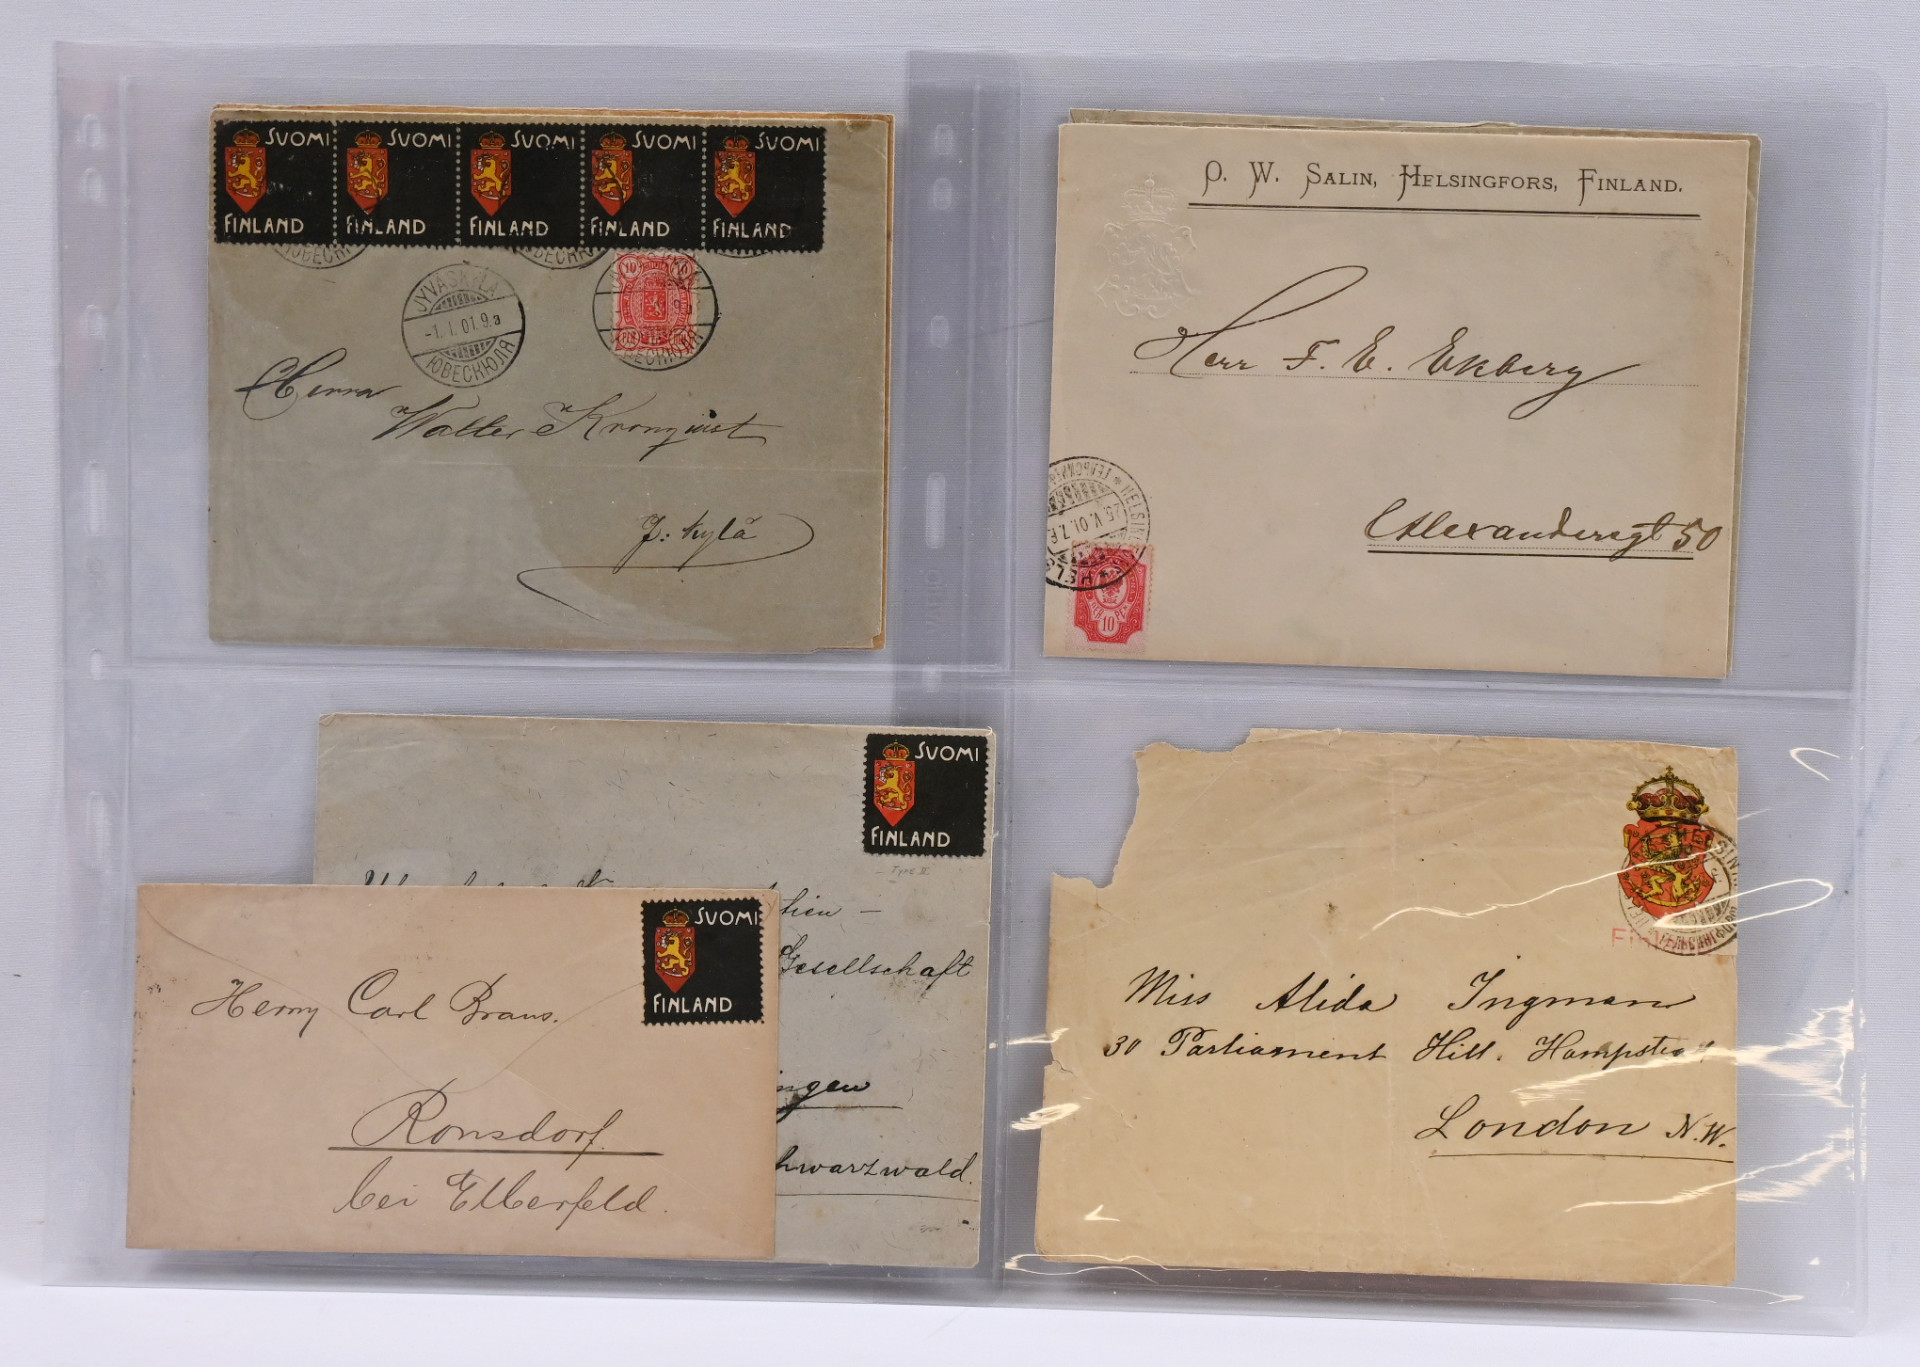 SUOMI SUOMI SUOMI SUOMI SUOMI
FINLAND FINLAND FINLAND FINLAND FINLAND
10 10
JYVÄSKYLÄ
-1.I.01.9a
ЮВЕСКЮЛЯ
Herra
Walter Kronqvist
J:kylä
O. W. SALIN, HELSINGFORS, FINLAND.
Herr F. E. Ekberg
Alexandersgt 50
25.V.01.7
10
SUOMI
FINLAND
TYPE II
Gesellschaft
SUOMI
FINLAND
Herrn Carl Braus.
Ronsdorf
bei Elberfeld.
Miss Alida Ingman
30 Parliament Hill. Hampstead
London N.W.